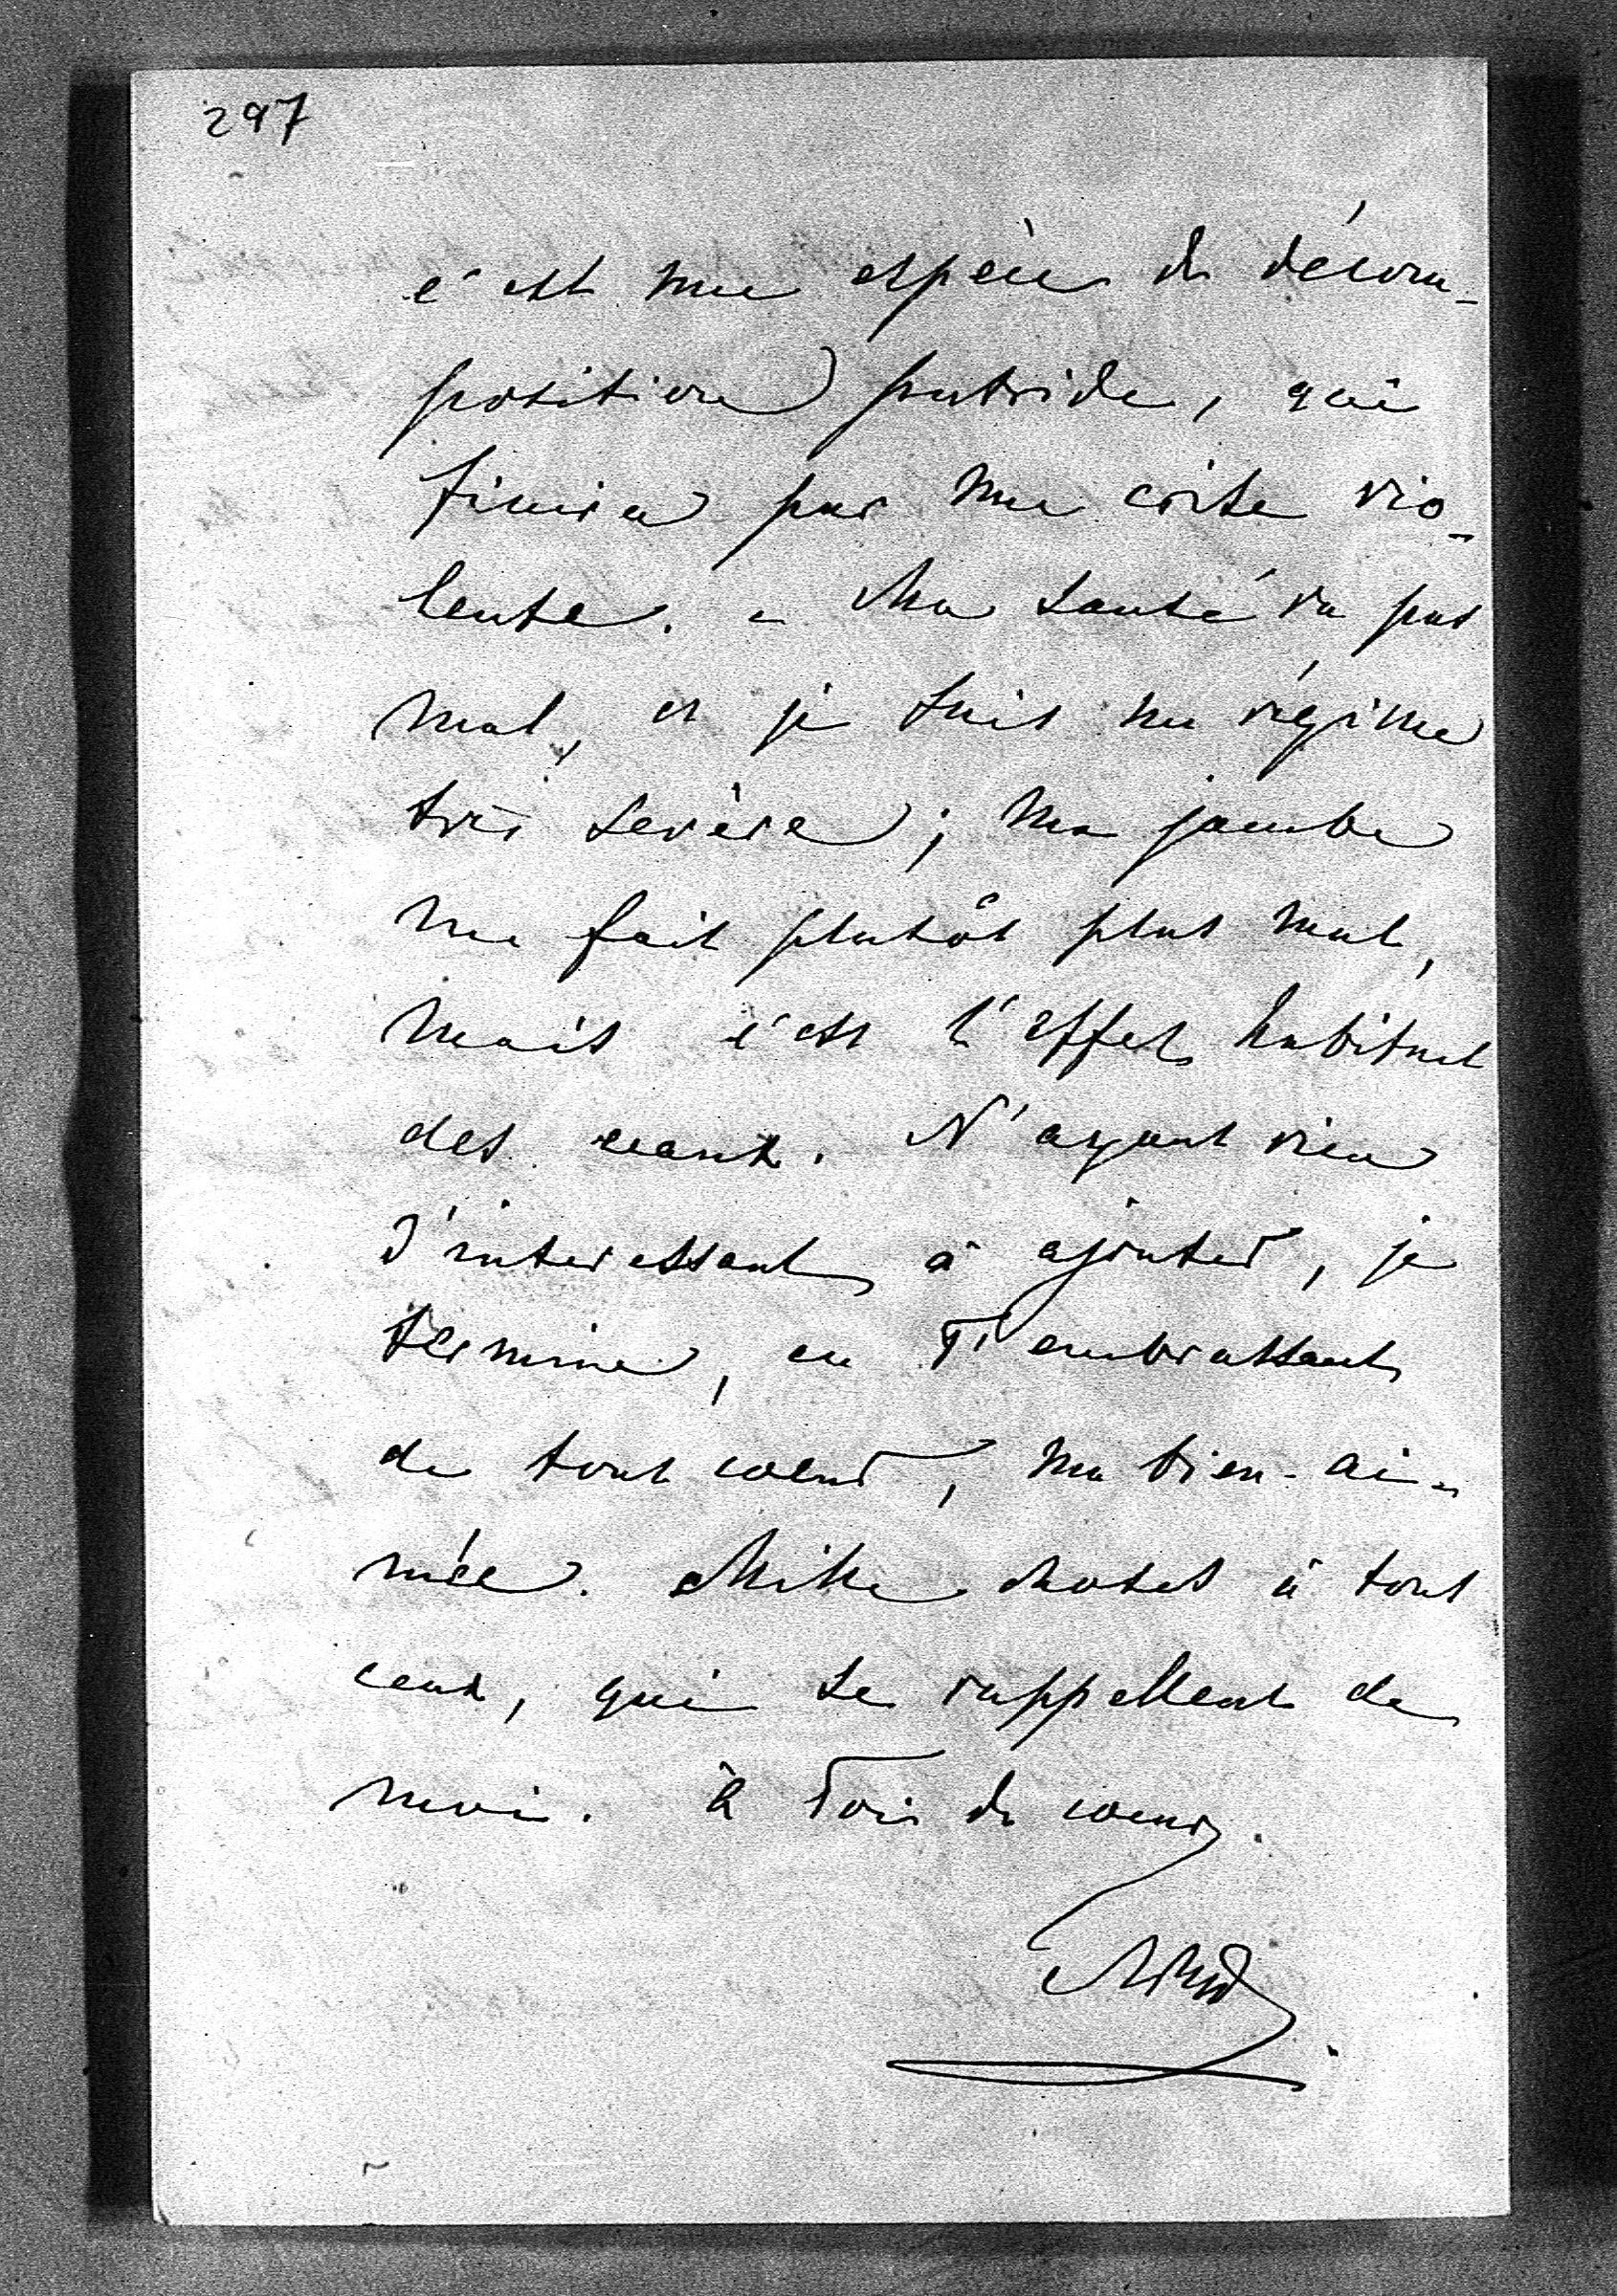 297
c'est une espèce de décom-
position putride, qui
finira par une crise vio-
lente. - Ma santé va pas
mal, et je suis un régime
très sevère; ma jambe
me fait plutôt plus mal,
mais c'est l'effet habituel
des eaux. N'ayant rien
d'interessant à ajouter, je
termine, en T'embrassant
de tout coeur, ma bien-ai-
mée. Mille choses à tous
ceux, qui se rappellent de
moi. à Toi de coeur.